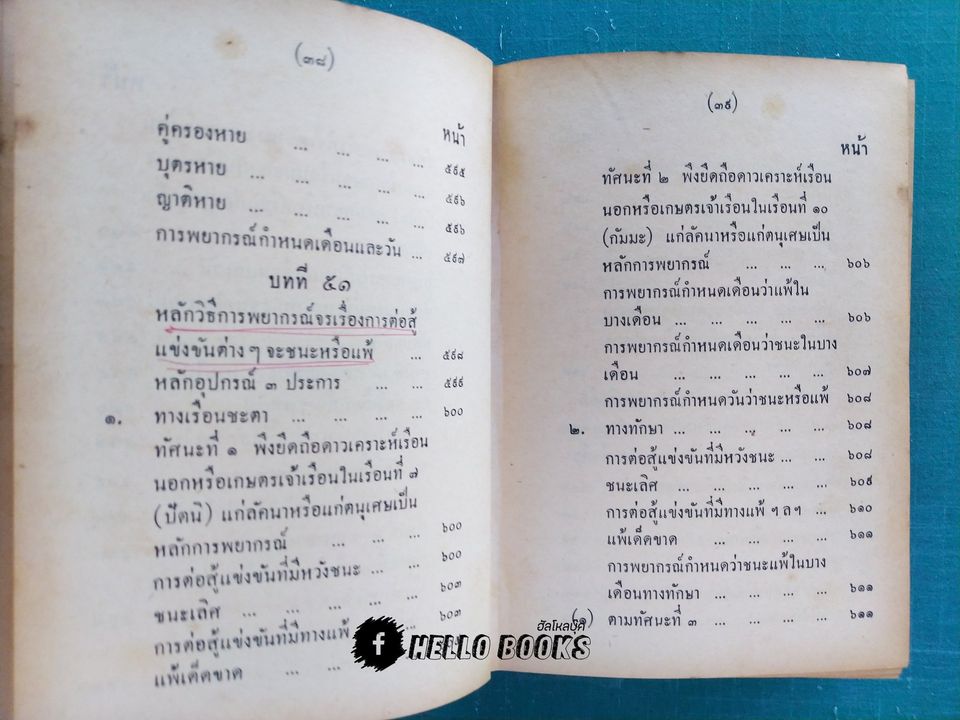 (๓๘)
หน้า
คู่ครองหาย ... ... ... ... ๕๙๕
บุตรหาย ... ... ... ... ... ๕๙๖
ญาติหาย ... ... ... ... ... ๕๙๖
การพยากรณ์กำหนดเดือนและวัน ... ๕๙๗
บทที่ ๕๑
หลักวิธีการพยากรณ์จรเรื่องการต่อสู้
แข่งขันต่าง ๆ จะชนะหรือแพ้ ... ๕๙๘
หลักอุปกรณ์ ๓ ประการ ... ... ๕๙๙
๑. ทางเรือนชะตา ... ... ... ... ๖๐๐
ทัศนะที่ ๑ พึงยึดถือดาวเคราะห์เรือน
นอกหรือเกษตรเจ้าเรือนในเรือนที่ ๗
(ปัตนิ) แก่ลัคนาหรือแก่ตนุเศษเป็น
หลักการพยากรณ์ ... ... ... ๖๐๐
การต่อสู้แข่งขันที่มีหวังชนะ ... ... ๖๐๐
ชนะเลิศ ... ... ... ... ... ๖๐๓
การต่อสู้แข่งขันที่มีทางแพ้ ๖๐๓
แพ้เด็ดขาด ... ...
(๓๙)
หน้า
ทัศนะที่ ๒ พึงยึดถือดาวเคราะห์เรือน
นอกหรือเกษตรเจ้าเรือนในเรือนที่ ๑๐
(กัมมะ) แก่ลัคนาหรือแก่ตนุเศษเป็น
หลักการพยากรณ์ ... ... ... ๖๐๖
การพยากรณ์กำหนดเดือนว่าแพ้ใน
บางเดือน ... ... ... ... ... ๖๐๖
การพยากรณ์กำหนดเดือนว่าชนะในบาง
เดือน ... ... ... ... ... ๖๐๗
การพยากรณ์กำหนดวันว่าชนะหรือแพ้ ๖๐๘
๒. ทางทักษา ... ... ... ... ... ๖๐๘
การต่อสู้แข่งขันที่มีหวังชนะ ... ... ๖๐๘
ชนะเลิศ ... ... ... ... ... ๖๐๙
การต่อสู้แข่งขันที่มีทางแพ้ ฯ ล ฯ ... ๖๑๐
แพ้เด็ดขาด ... ... ... ... ๖๑๑
การพยากรณ์กำหนดว่าชนะแพ้ในบาง
เดือนทางทักษา ... ... ... ... ๖๑๑
(๑) ตามทัศนะที่ ๓ ... ... ... ... ๖๑๑
ฮัลโหลบุ๊คส์
HELLO BOOKS